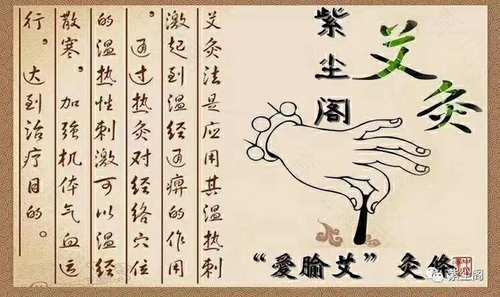 紫尘阁
艾灸
艾灸法是应用其温热刺
激起到温经通痹的作用
，通过热灸对经络穴位
的温热性刺激可以温经
散寒，加強机体气血运
行，达到治疗目的。
“愛腧艾”灸修
紫尘阁